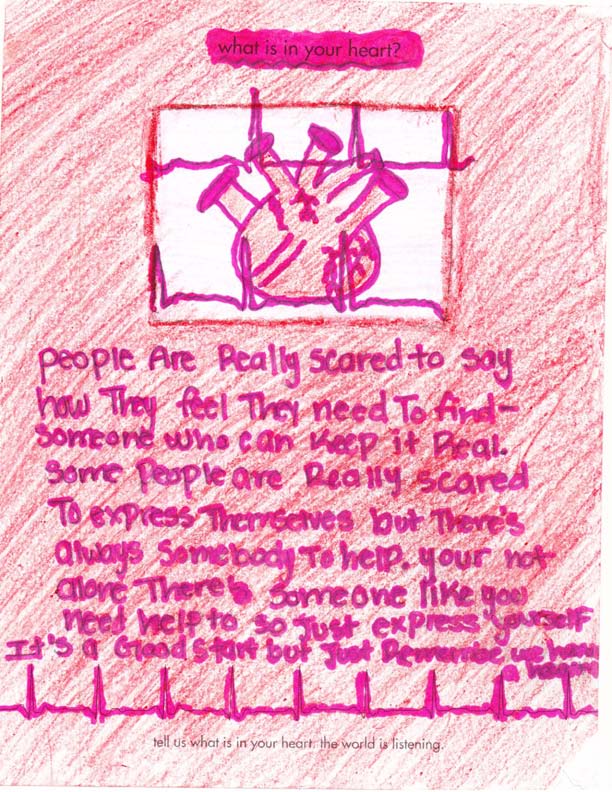 what is in your heart?
people Are Really scared to say
how They feel They need To find-
someone who can Keep it Real.
Some People are Really scared
To express Themselves but There's
always Somebody To help. your not
alone There's someone like you
need help to so Just express yourself
It's a Good Start but Just Remember we
a
tell us what is in your heart. the world is listening.